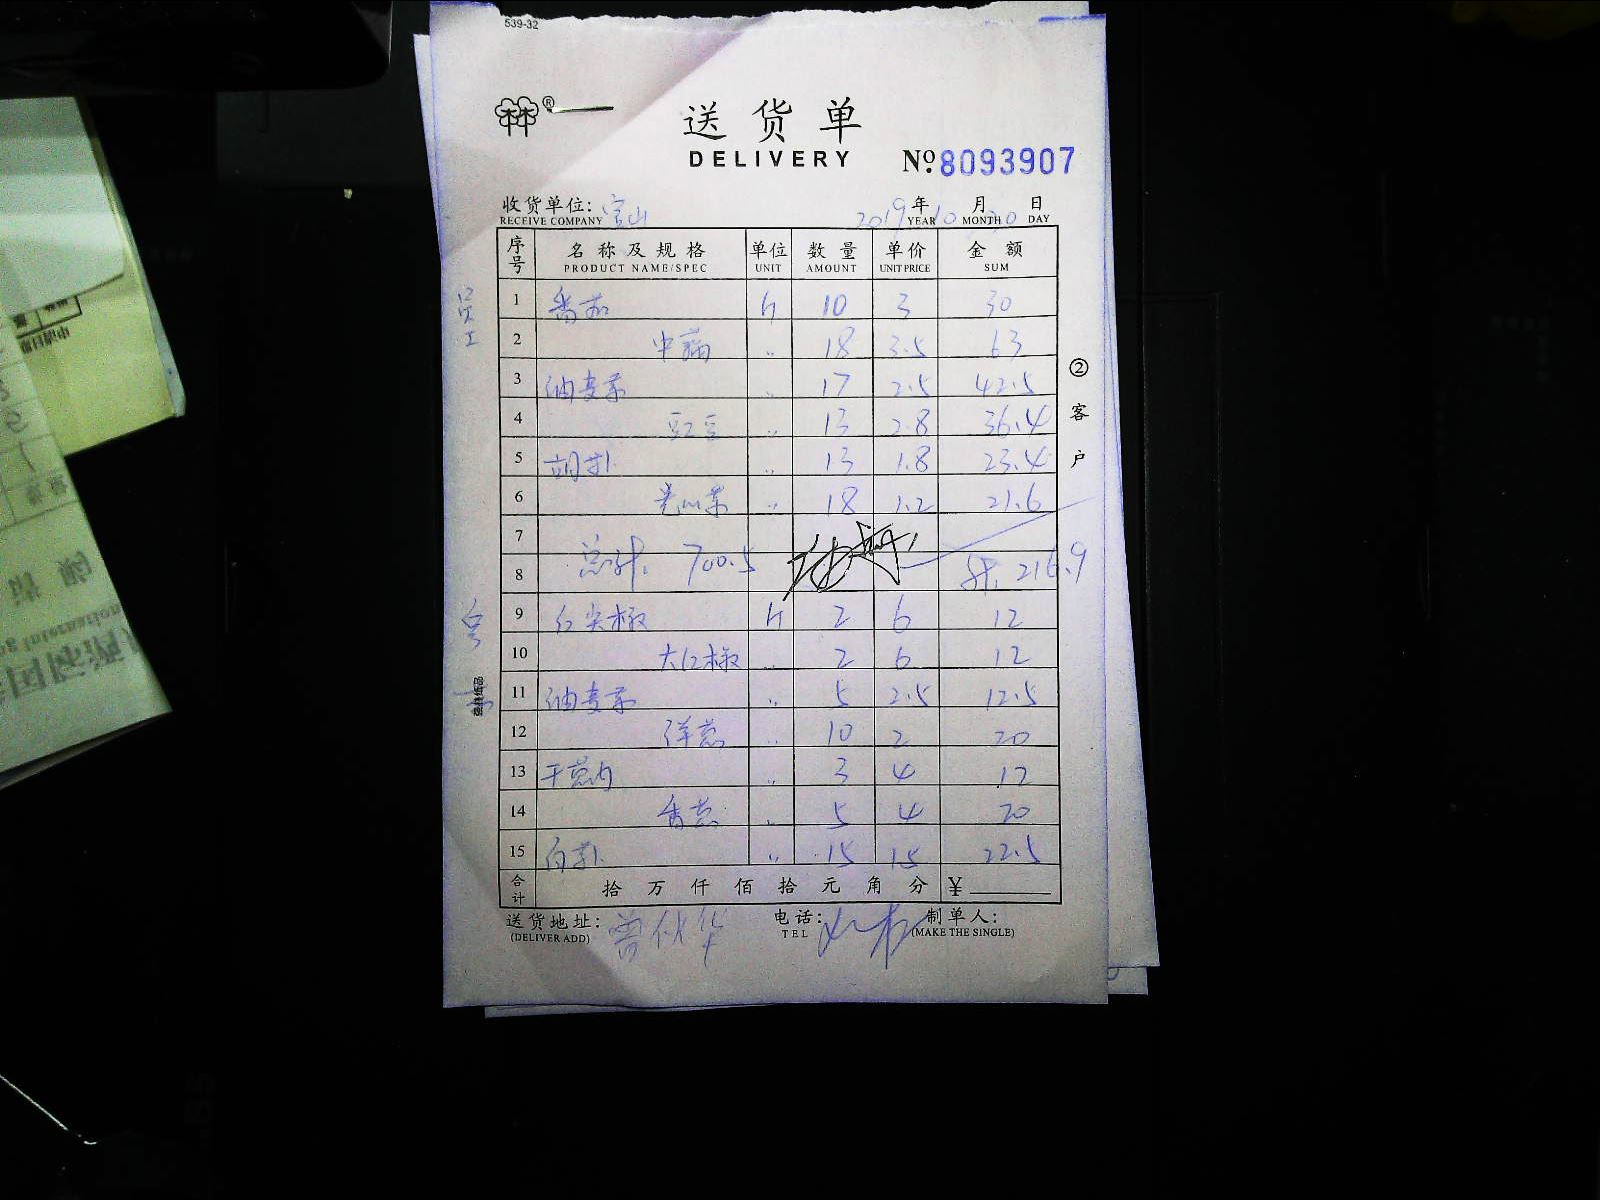 539-32
林®
送货单
DELIVERY
№ 8093907
收货单位: 宝山 2019 年 10 月 30 日
RECEIVE COMPANY YEAR MONTH DAY
序号 名称及规格 单位 数量 单价 金额
PRODUCT NAME/SPEC UNIT AMOUNT UNIT PRICE SUM
员工
1 番茄 斤 10 3 30
2 〃 18 3.5 63
3 油麦菜 〃 17 2.5 42.5
4 豇豆 〃 13 2.8 36.4
5 胡卜 〃 13 1.8 23.4
6 〃 18 1.2 21.6
7
总计. 700.5
8 计. 216.9
9 红尖椒 斤 2 6 12
10 大红椒 〃 2 6 12
11 油麦菜 〃 5 2.5 12.5
12 洋葱 〃 10 2 20
13 干葱肉 〃 3 4 12
14 香葱 〃 5 4 20
15 白卜 〃 15 15 22.5
合计 拾 万 仟 佰 拾 元 角 分 ¥
②客户
送货地址: 电话: 制单人:
(DELIVER ADD) TEL (MAKE THE SINGLE)